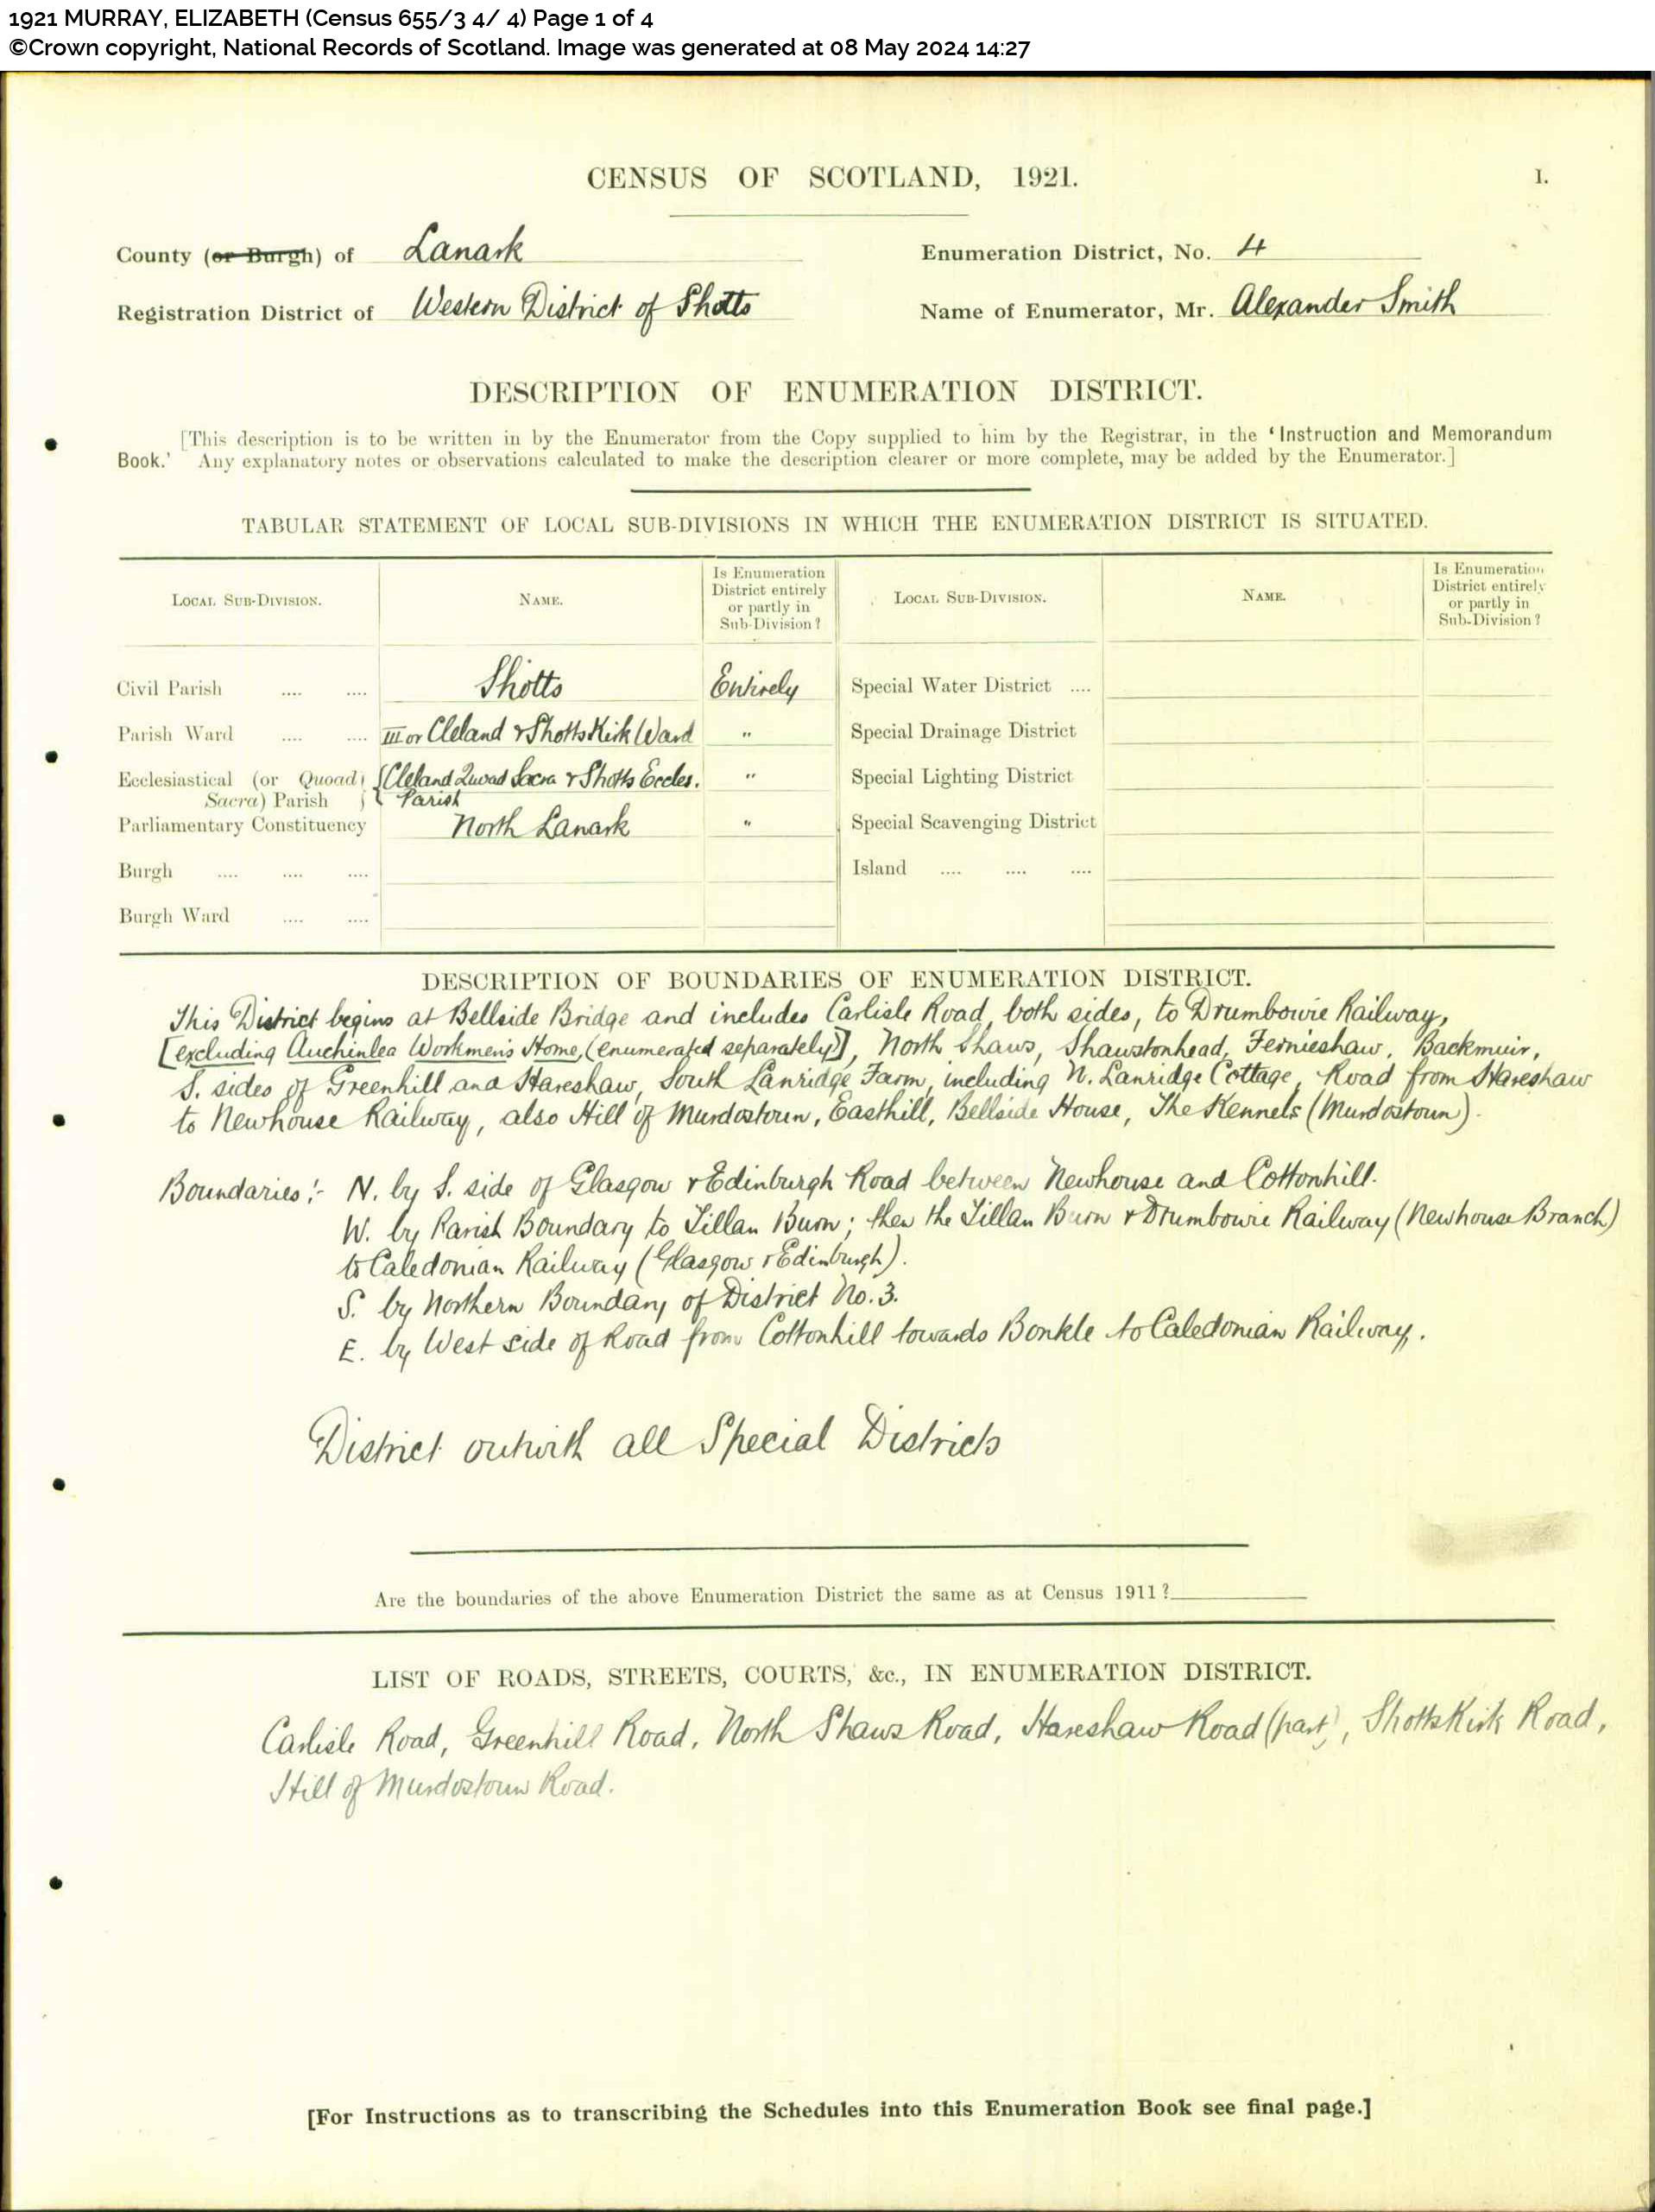 1921 MURRAY, ELIZABETH (Census 655/3 4/ 4) Page 1 of 4
©Crown copyright, National Records of Scotland. Image was generated at 08 May 2024 14:27
CENSUS OF SCOTLAND, 1921.
I.
County (or Burgh) of Lanark
Enumeration District, No. 4
Registration District of Western District of Shotts
Name of Enumerator, Mr. Alexander Smith
DESCRIPTION OF ENUMERATION DISTRICT.
[This description is to be written in by the Enumerator from the Copy supplied to him by the Registrar, in the 'Instruction and Memorandum
Book.' Any explanatory notes or observations calculated to make the description clearer or more complete, may be added by the Enumerator.]
TABULAR STATEMENT OF LOCAL SUB-DIVISIONS IN WHICH THE ENUMERATION DISTRICT IS SITUATED.
LOCAL SUB-DIVISION.
NAME.
Is Enumeration
District entirely
or partly in
Sub-Division?
LOCAL SUB-DIVISION.
NAME.
Is Enumeration
District entirely
or partly in
Sub-Division?
Civil Parish .... .... Shotts Entirely Special Water District ....
Parish Ward .... .... III or Cleland & Shotts Kirk Ward " Special Drainage District
Ecclesiastical (or Quoad } { Cleland Quoad Sacra & Shotts Eccles. " Special Lighting District
Sacra) Parish } { Parish
Parliamentary Constituency North Lanark " Special Scavenging District
Burgh .... .... .... Island .... .... ....
Burgh Ward .... ....
DESCRIPTION OF BOUNDARIES OF ENUMERATION DISTRICT.
This District begins at Bellside Bridge and includes Carlisle Road, both sides, to Drumbowie Railway,
[excluding Auchinlea Workmen's Home, (enumerated separately)], North Shaws, Shawstonhead, Fernieshaw, Backmuir,
S. sides of Greenhill and Hareshaw, South Lanridge Farm, including N. Lanridge Cottage, Road from Hareshaw
to Newhouse Railway, also Hill of Murdostoun, Easthill, Bellside House, The Kennels (Murdostoun).
Boundaries:- N. by S. side of Glasgow & Edinburgh Road between Newhouse and Cottonhill.
W. by Parish Boundary to Tillan Burn; then the Tillan Burn & Drumbowie Railway (Newhouse Branch)
to Caledonian Railway (Glasgow & Edinburgh).
S. by Northern Boundary of District No. 3.
E. by West side of Road from Cottonhill towards Bonkle to Caledonian Railway.
District outwith all Special Districts
Are the boundaries of the above Enumeration District the same as at Census 1911?
LIST OF ROADS, STREETS, COURTS, &c., IN ENUMERATION DISTRICT.
Carlisle Road, Greenhill Road, North Shaws Road, Hareshaw Road (part), Shotts Kirk Road,
Hill of Murdostoun Road.
[For Instructions as to transcribing the Schedules into this Enumeration Book see final page.]